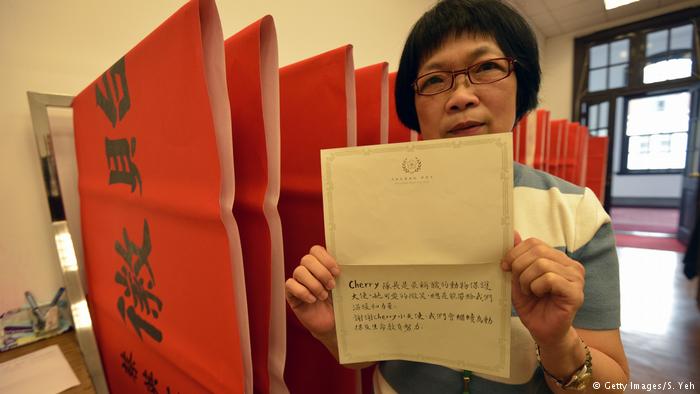 徵員
Cherry 隊長是最稱職的動物保護
大使,她可愛的微笑,總是能帶給我們
溫暖和力量。
謝謝Cherry小天使,我們會繼續為動
保及生命教育努力.
© Getty Images/S. Yeh